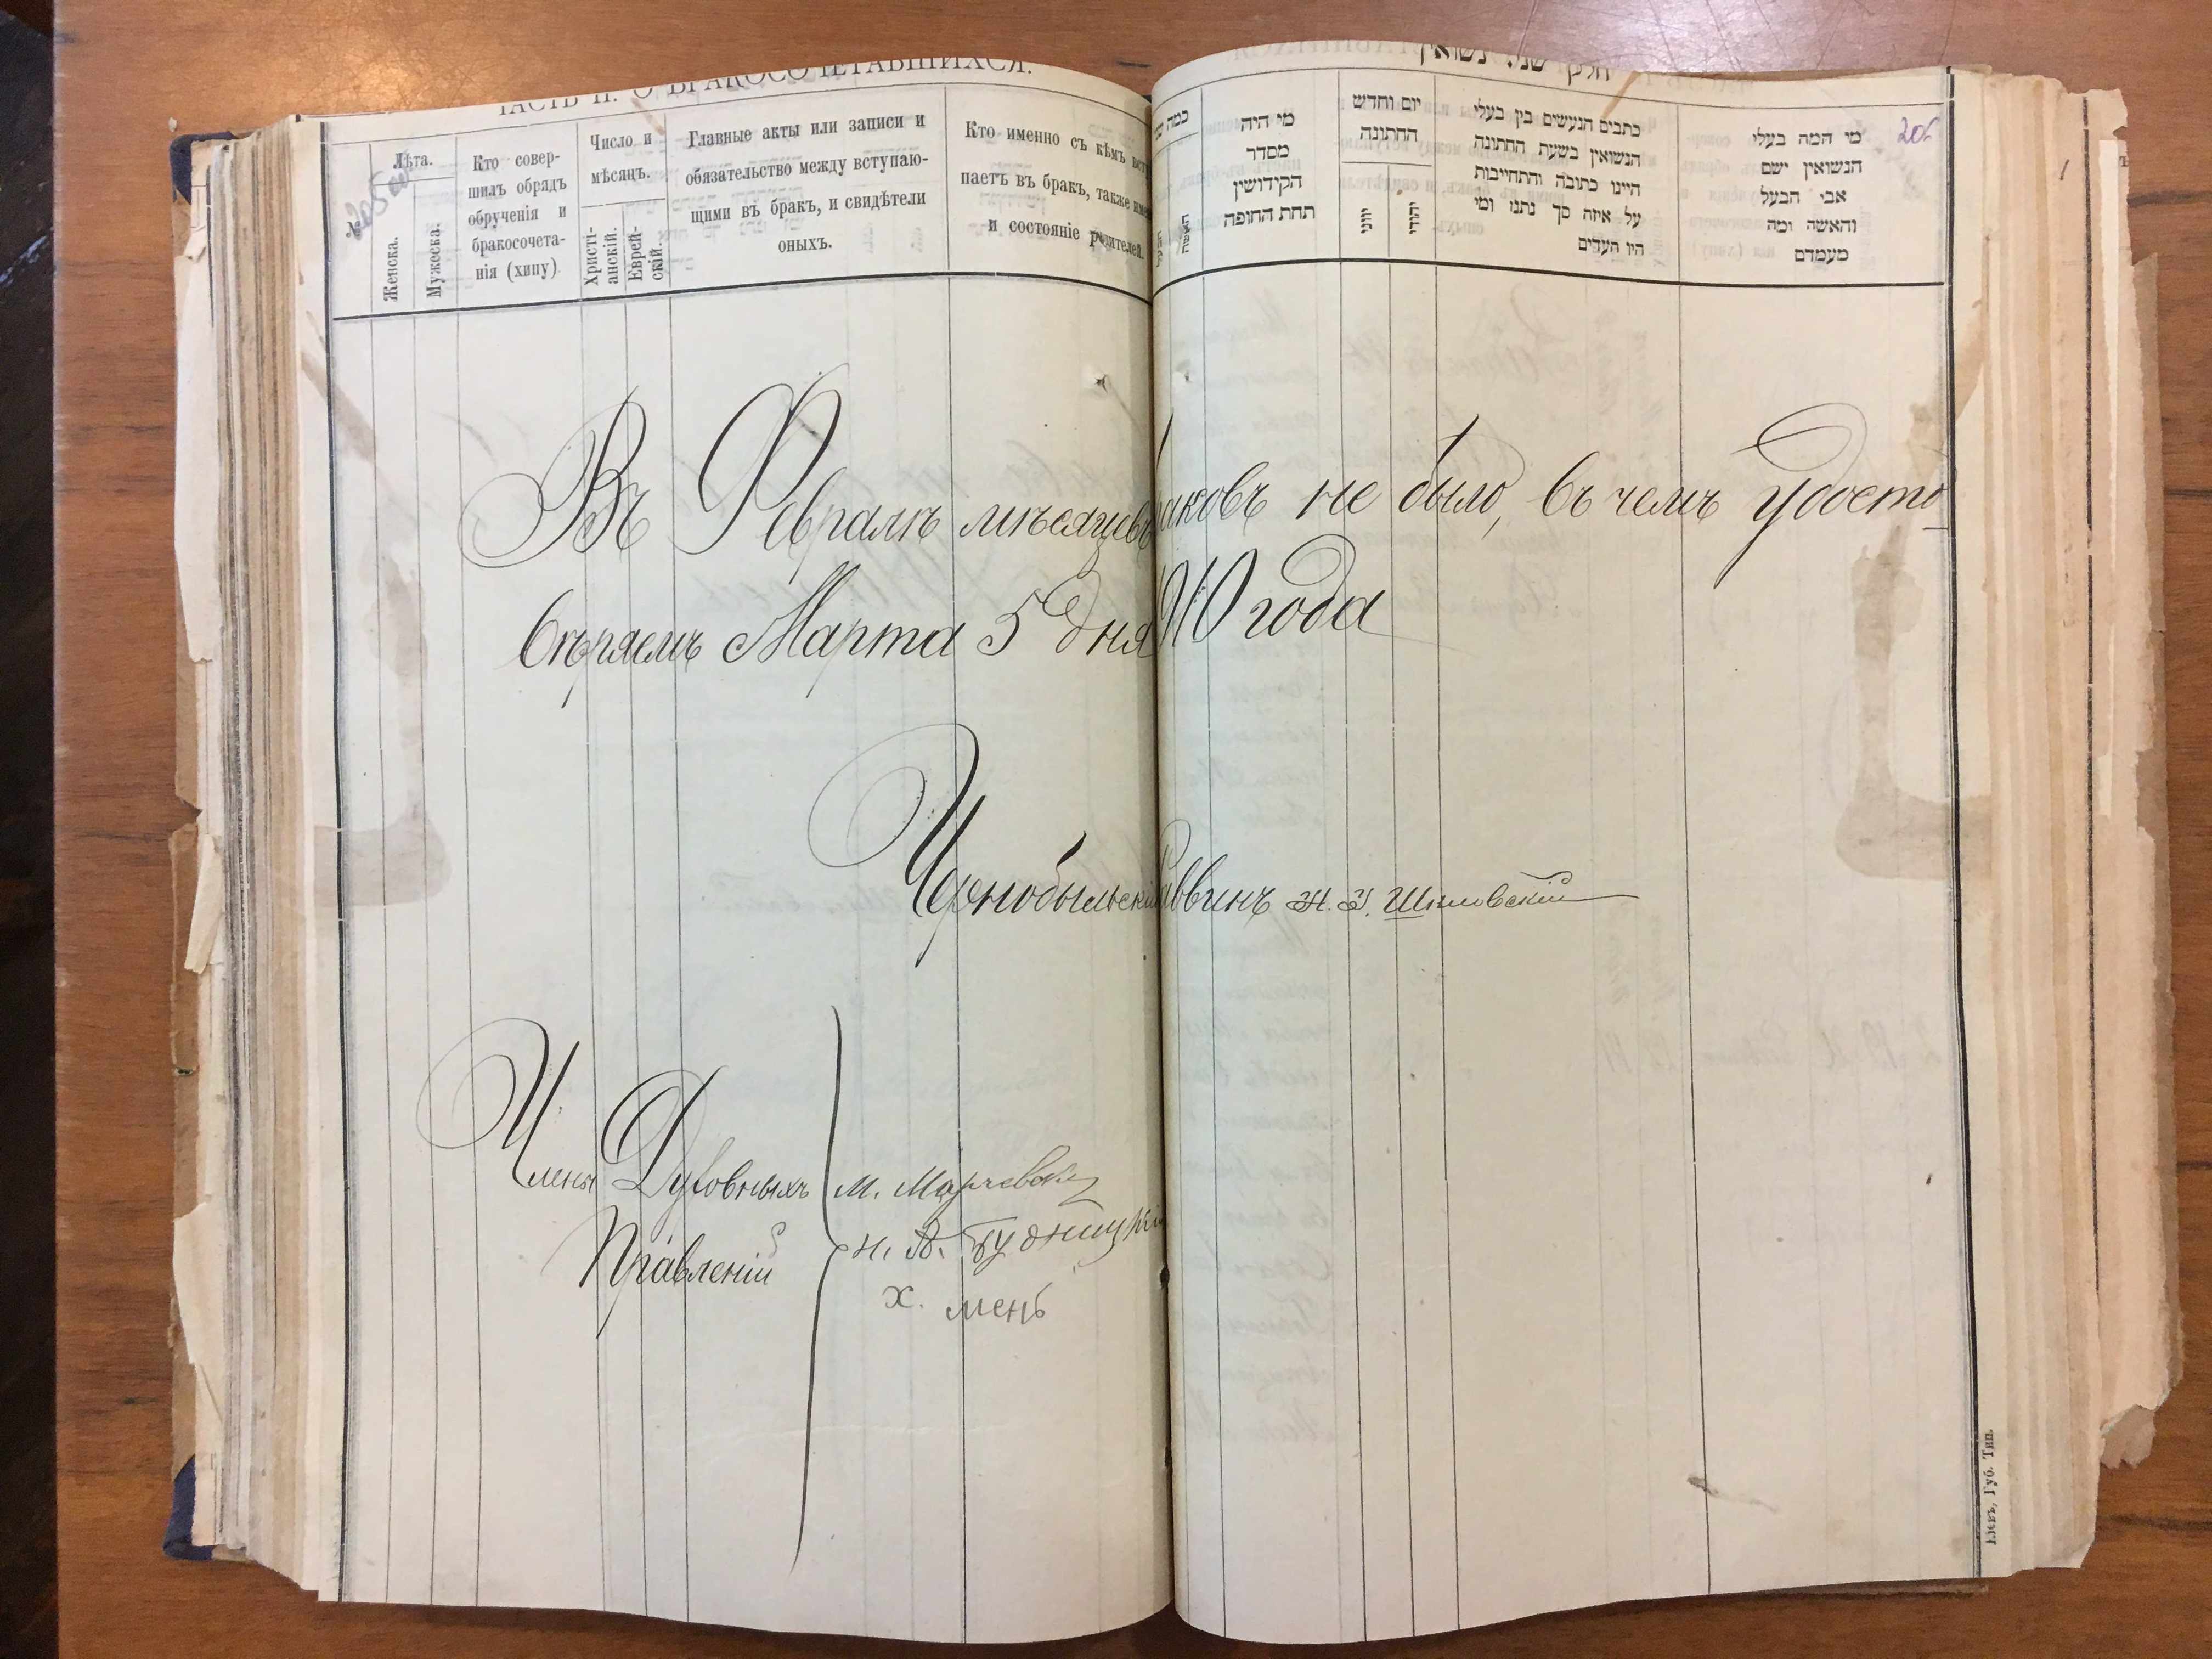 ЧАСТЬ II. О БРАКОСОЧЕТАВШИХСЯ.
Лѣта.
Женска.
Мужеска.
Кто совер-
шилъ обрядъ
обрученія и
бракосочета-
нія (хипу)
Число и
мѣсяцъ.
Христі-
анскій.
Еврей-
скій.
Главные акты или записи и
обязательство между вступаю-
щими въ бракъ, и свидѣтели
оныхъ.
Кто именно съ кѣмъ
паетъ въ бракъ, также
и состояніе родителей.
חלק שני. נשואין
כמה
האשה
מי היה
מסדר
הקידושין
תחת החופה
יום וחדש
החתונה
יווני
יהודי
כתבים הנעשים בין בעלי
הנשואין בשעת החתונה
היינו כתובה והתחייבות
על איזה סך נתנו ומי
היו העדים
מי המה בעלי
הנשואין ושם
אבי הבעל
והאשה ומה
מעמדם
Въ Февралѣ мѣсяцѣ браковъ не было, въ чемъ удосто
вѣряемъ Марта 5 дня 1910 года
Чернобыльскій Раввинъ Шиловскій
Члены Духовныхъ
Правленій
М. Марчевский
Н. В. Будницкій
Х. Мень
Кіевъ, Губ. Тип.